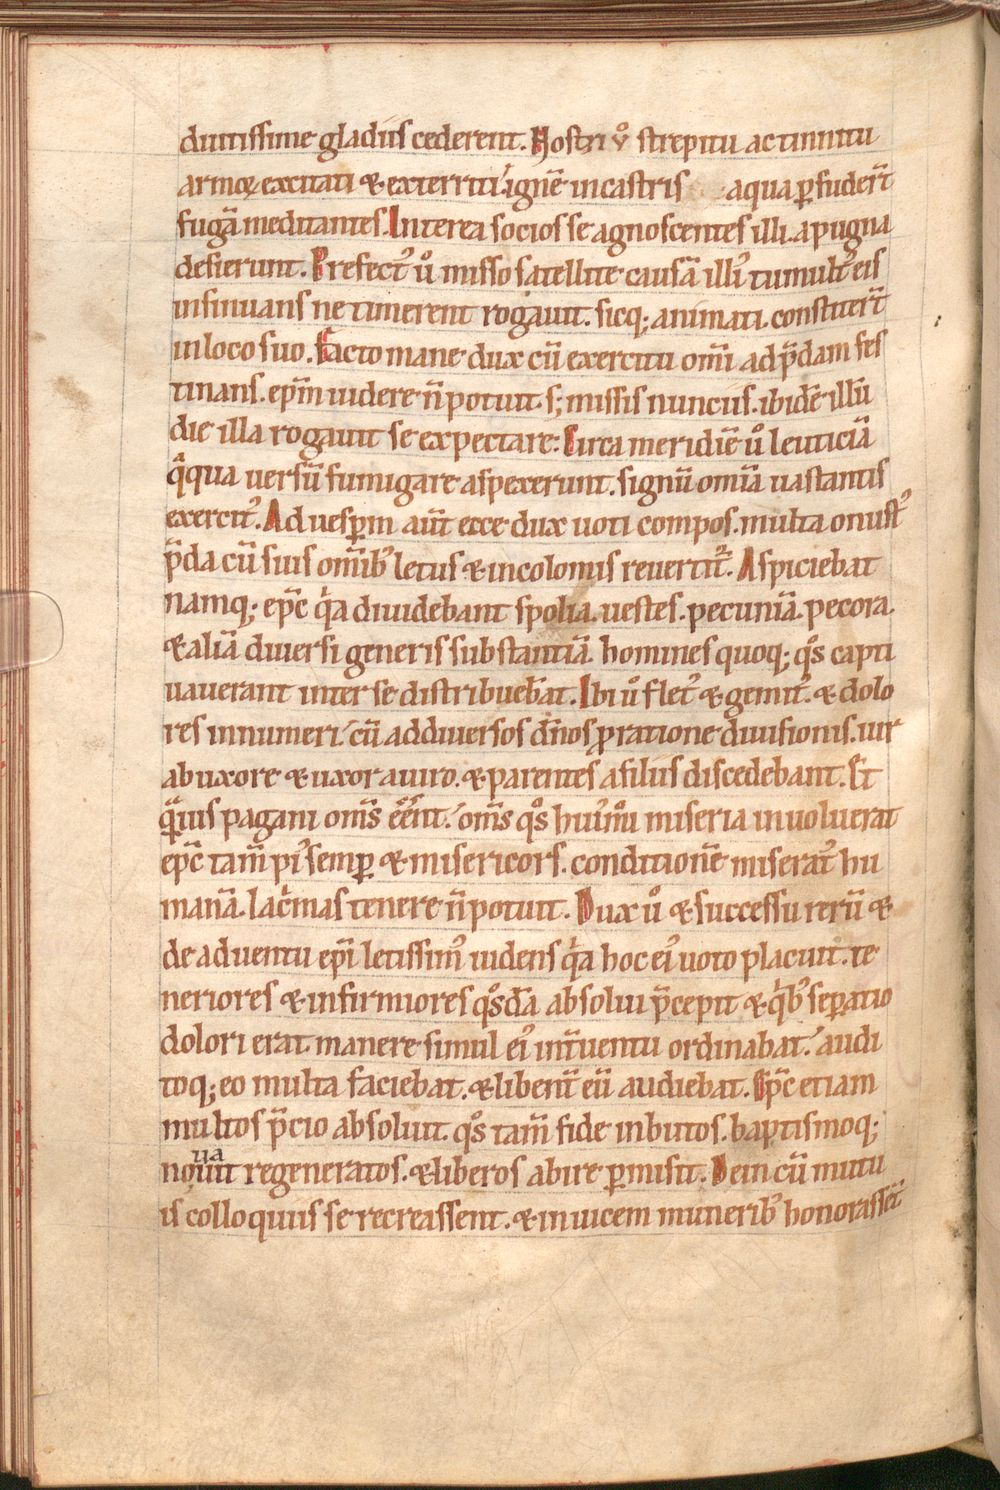 diutissime gladiis cederent. Nostri v̊ strepitu ac tinnitu
armoꝝ excitati & exterriti ignē in castris aqua ꝑfuder̄t
fugā meditantes. Interea socios se agnoscentes illi. a pugna
desierunt. Prefect᷒ ů misso satellite causā illi᷒ tumult᷒ eis
insinuans ne timerent rogauit. sicq; animati. constiter̄t
in loco suo. Facto mane dux cū exercitu om̄i ad p̄dam fes
tinans. ep̄m uidere n̄ potuit. s; missis nunciis. ibidē illū
die illa rogauit se expectare: Circa meridiē ů leuticiā
q̄qua uersū fumigare aspexerunt. signū omīa uastantis
exercit᷒. Ad uesꝑm aūt ecce dux uoti compos. multa onust᷒
p̄da cū suis om̄ib᷒ letus & incolomis reuertit᷑. Aspiciebat
namq; ep̄c q̇a diuidebant spolia. uestes. pecuniā. pecora.
& aliā diuersi generis substantiā. homines quoq; q̊s capti
uauerant inter se distribueb̄at. Ibi ů flet᷒ & gemit᷒. & dolo
res innumeri cū ad diuersos dn̄os ꝓ ratione diuisionis. uir
ab uxore & uxor a uiro. & parentes a filiis discedebant. Et
q̄uis pagani om̄s eēnt. om̄s q̊s hui᷒mōi miseria inuoluerat
ep̄c tam̄ pi᷒ semꝑ & misericors. conditionē miserat᷒ hu
manā. lac̓mas tenere n̄ potuit. Dux ů & successu rerū &
de aduentu ep̄i letissim᷒ uidens q̇a hoc ei᷒ uoto placuit. te
neriores & infirmiores q̊sdā absolui p̄cepit & q̇b᷒ seꝑatio
dolori erat. manere simul ei᷒ int̄uentu ordinabat. audi
toq; eo multa faciebat. & libent̄ eū audiebat. Ep̄c etiam
multos p̄cio absoluit. q̊s tam̄ fide inbutos. baptismoq;
nouit regeneratos. & liberos abire ꝑmisit. Dein cū mutu
is colloquiis se recreassent. & inuicem munerib᷒ honorassēt